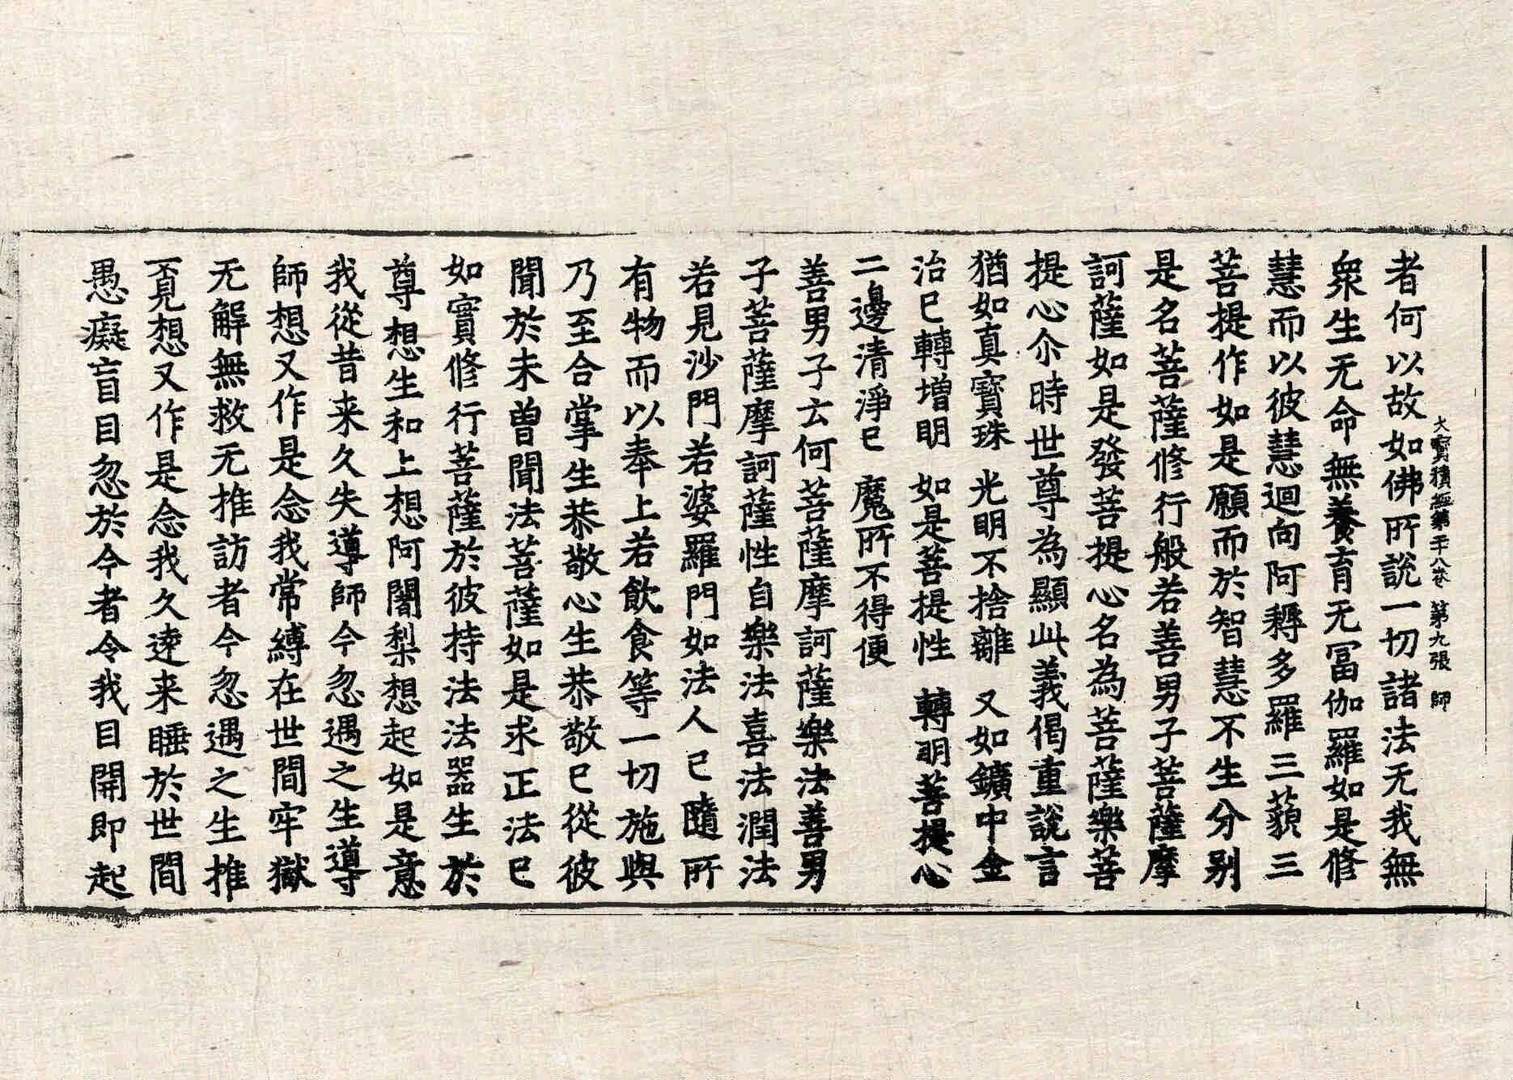 大寳積經第二十八卷 第九張 師
者何以故如佛所說一切諸法无我無
衆生无命無養育无冨伽羅如是修
慧而以彼慧迴向阿耨多羅三藐三
菩提作如是願而於智慧不生分别
是名菩薩修行般若善男子菩薩摩
訶薩如是發菩提心名為菩薩樂菩
提心尒時世尊為顯此義偈重說言
猶如真寳珠 光明不捨離 又如鑛中金
治已轉増明 如是菩提性 轉明菩提心
二邊清淨已 魔所不得便
善男子云何菩薩摩訶薩樂法善男
子菩薩摩訶薩性自樂法喜法潤法
若見沙門若婆羅門如法人已隨所
有物而以奉上若飲食等一切施與
乃至合掌生恭敬心生恭敬已從彼
聞於未曽聞法菩薩如是求正法已
如實修行菩薩於彼持法法器生於
尊想生和上想阿闍梨想起如是意
我從昔来久失導師今忽遇之生導
師想又作是念我常縛在世間牢獄
无解無救无推訪者今忽遇之生推
覓想又作是念我久遠来睡於世間
愚癡盲目忽於今者令我目開即起